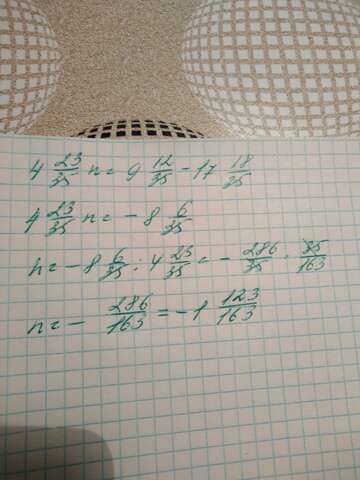 4 23/35 n = 9 12/35 - 17 18/35
4 23/35 n = - 8 6/35
n = - 8 6/35 : 4 23/35 = - 286/35 · 35/163
n = - 286/163 = -1 123/163